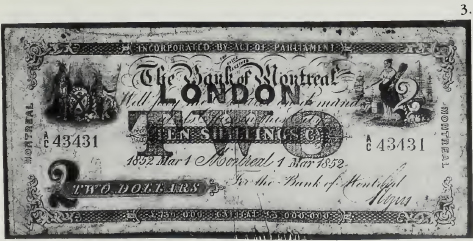 3.
INCORPORATED BY ACT OF PARLIAMENT
The Bank of Montreal
LONDON
Will pay
TWO
TEN SHILLINGS CY
MONTREAL
MONTREAL
A/C 43431
A/C 43431
2
1852 Mar 1 Montreal 1 Mar 1852
2 TWO DOLLARS
For the Bank of Montreal
CAPITAL
HAMILTON